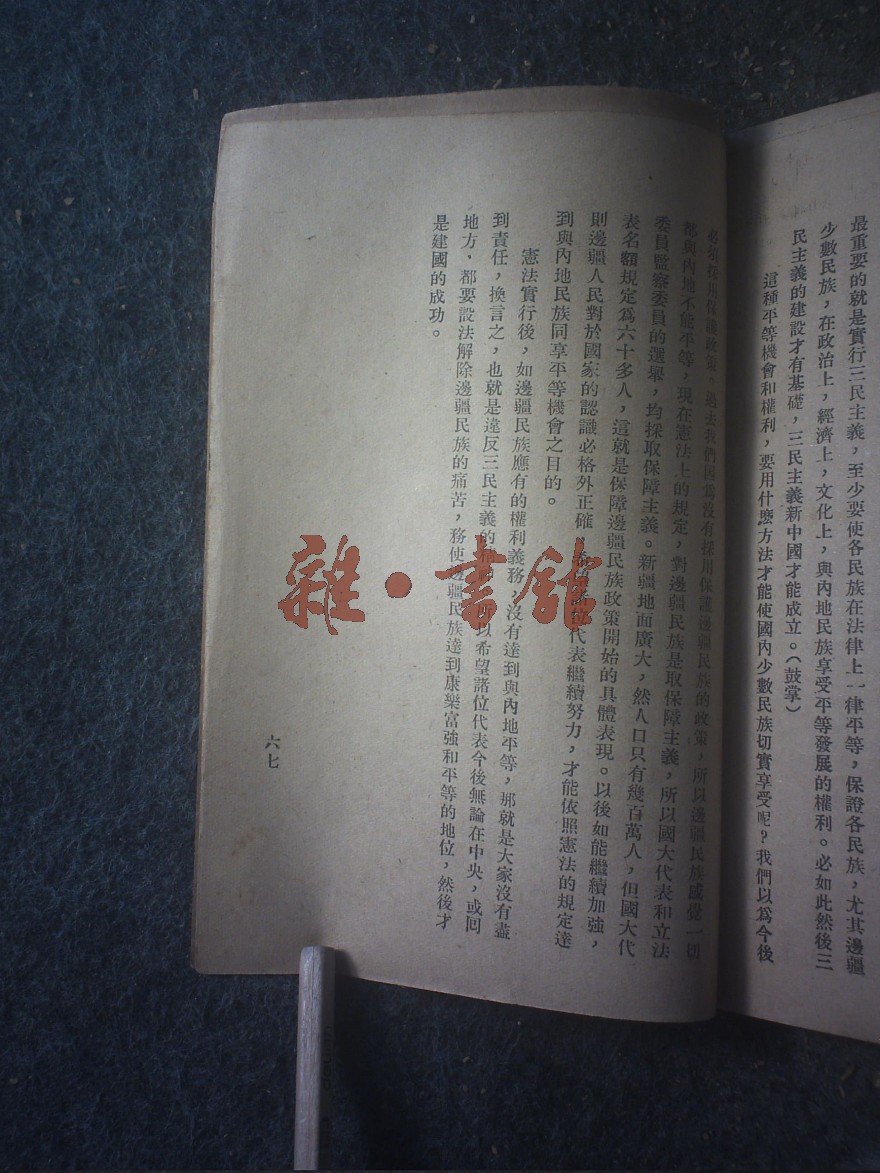 最重要的就是實行三民主義，至少要使各民族在法律上一律平等，保證各民族，尤其邊疆
少數民族，在政治上，經濟上，文化上，與內地民族享受平等發展的權利。必如此然後三
民主義的建設才有基礎，三民主義新中國才能成立。（鼓掌）
這種平等機會和權利，要用什麽方法才能使國內少數民族切實享受呢？我們以爲今後
必須採用保護政策。過去我們因爲沒有採用保護邊疆民族的政策，所以邊疆民族感覺一切
都與內地不能平等，現在憲法上的規定，對邊疆民族是取保障主義，所以國大代表和立法
委員監察委員的選舉，均採取保障主義。新疆地面廣大，然人口只有幾百萬人，但國大代
表名額規定爲六十多人，這就是保障邊疆民族政策開始的具體表現。以後如能繼續加強，
則邊疆人民對於國家的認識必格外正確 諸位代表繼續努力，才能依照憲法的規定達
到與內地民族同享平等機會之目的。
憲法實行後，如邊疆民族應有的權利義務，沒有達到與內地平等，那就是大家沒有盡
到責任，換言之，也就是違反三民主義的精神，所以希望諸位代表今後無論在中央，或囘
地方，都要設法解除邊疆民族的痛苦，務使邊疆民族達到康樂富強和平等的地位，然後才
是建國的成功。
六七
雜·書館